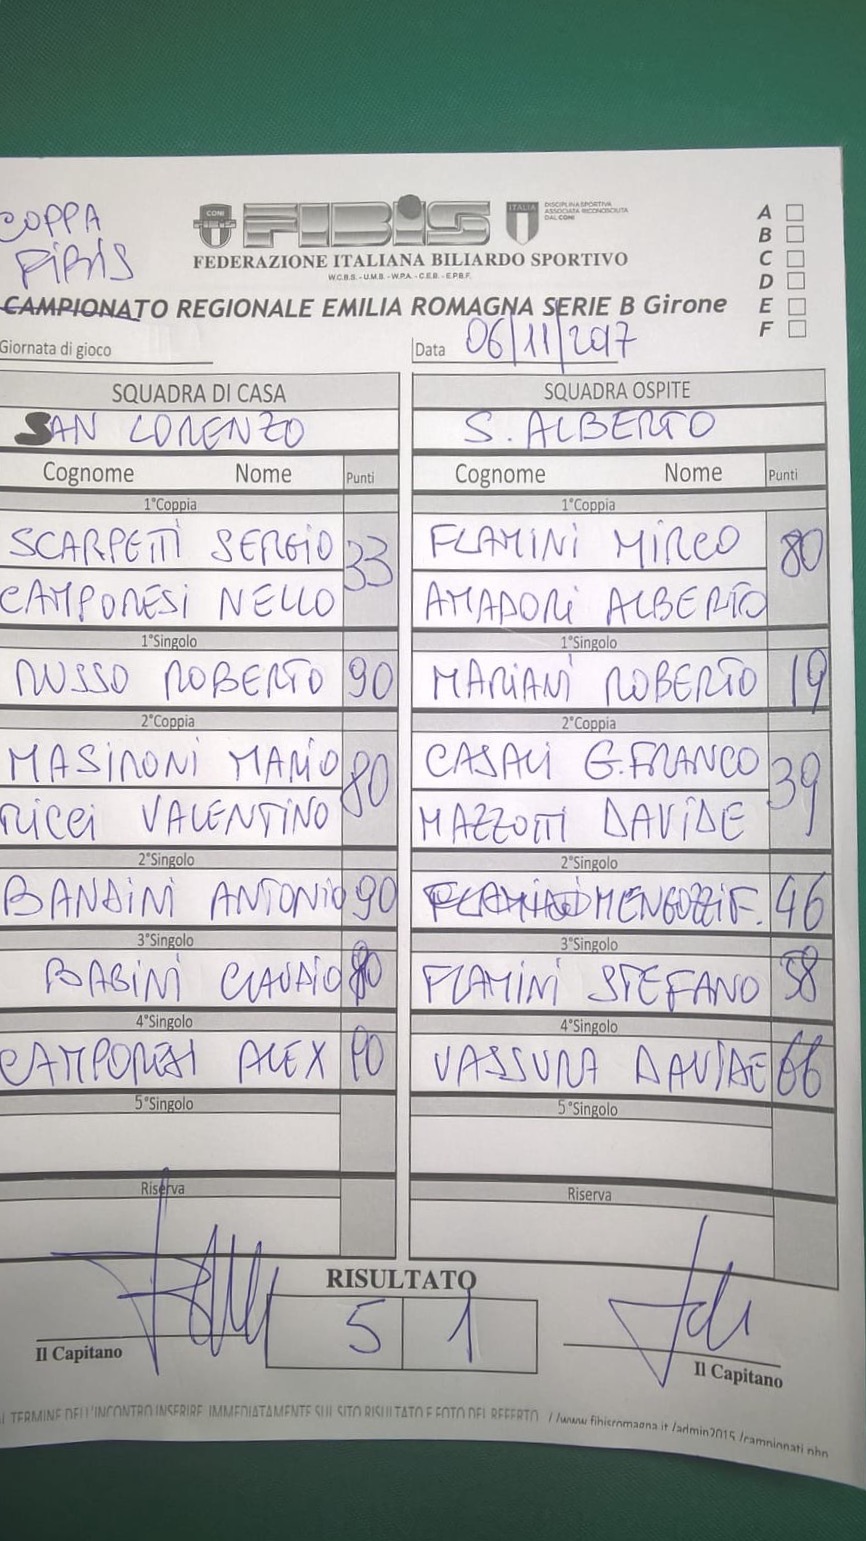 COPPA
FIBIS
CONI
FIBIS
ITALIA
DISCIPLINA SPORTIVA
ASSOCIATA RICONOSCIUTA
DAL CONI
FEDERAZIONE ITALIANA BILIARDO SPORTIVO
W.C.B.S. - U.M.B. - W.P.A. - C.E.B. - E.P.B.F.
A
B
C
D
E
F
CAMPIONATO REGIONALE EMILIA ROMAGNA SERIE B Girone
Giornata di gioco
Data 06/11/2017
SQUADRA DI CASA SQUADRA OSPITE
SAN LORENZO S. ALBERTO
Cognome Nome Punti Cognome Nome Punti
1°Coppia 1°Coppia
SCARPETTI SERGIO 33 FLAMINI MIRCO 80
CAMPORESI NELLO AMADORI ALBERTO
1°Singolo 1°Singolo
RUSSO ROBERTO 90 MARIANI ROBERTO 19
2°Coppia 2°Coppia
MASIRONI MARIO 80 CASALI G.FRANCO 39
RICCI VALENTINO MAZZOTTI DAVIDE
2°Singolo 2°Singolo
BANDINI ANTONIO 90 MENGOZZI F. 46
3°Singolo 3°Singolo
BABINI CLAUDIO FLAMINI STEFANO 58
4°Singolo 4°Singolo
CAMPORESI ALEX 90 VASSURA DAVIDE 66
5°Singolo 5°Singolo
Riserva Riserva
RISULTATO
5 1
Il Capitano Il Capitano
AL TERMINE DELL'INCONTRO INSERIRE IMMEDIATAMENTE SUL SITO RISULTATO E FOTO DEL REFERTO //www.fibisromagna.it/admin2015/campionati.php